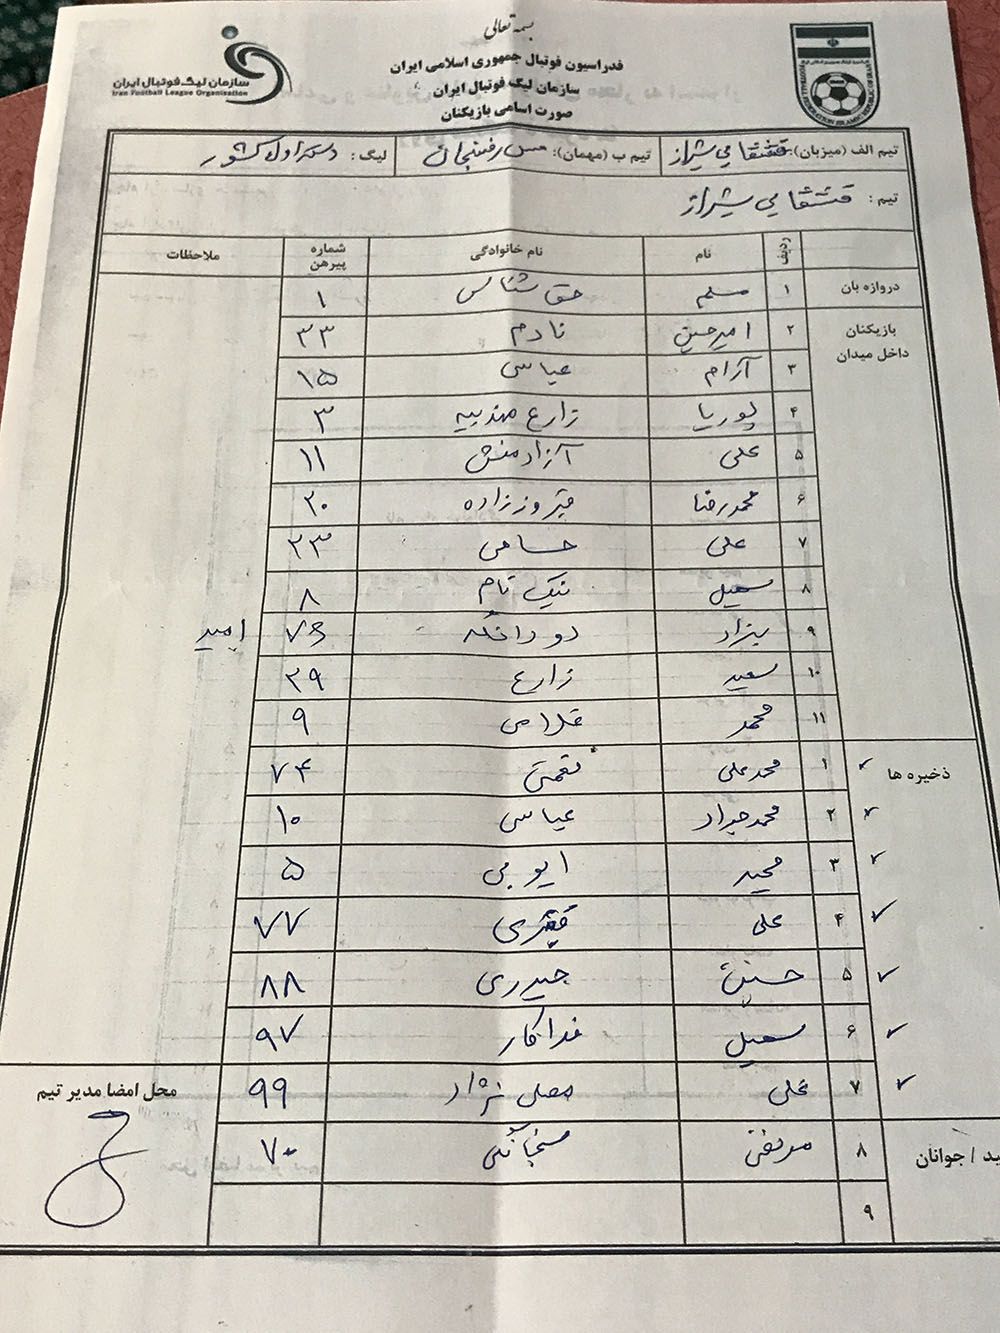 بسمه تعالی
فدراسیون فوتبال جمهوری اسلامی ایران
سازمان لیگ فوتبال ایران
صورت اسامی بازیکنان
سازمان لیگ فوتبال ایران
Iran Football League Organisation
FOOTBALL FEDERATION ISLAMIC REPUBLIC OF IRAN
تیم الف (میزبان): قشقایی شیراز تیم ب (مهمان): مس رفسنجان لیگ: دسته اول کشور
تیم: قشقایی شیراز
ردیف نام نام خانوادگی شماره پیرهن ملاحظات
دروازه بان ۱ مسلم حق شناس ۱
بازیکنان داخل میدان ۲ امیرحسین نادم ۳۳
۳ آرام عباسی ۱۵
۴ پوریا زارع مهذبیه ۳
۵ علی آزادمنش ۱۱
۶ محمدرضا فیروززاده ۲۰
۷ علی حسامی ۲۳
۸ سهیل نیک نام ۸
۹ بهزاد دودانگه ۷۶ امید
۱۰ سعید زارع ۲۹
۱۱ محمد غلامی ۹
ذخیره ها ۱ محمدعلی نعمتی ۷۴
۲ محمدجواد عباسی ۱۰
۳ مجید ایوبی ۵
۴ علی ۷۷
۵ حسین حیدری ۸۸
۶ سهیل فداکار ۹۷
۷ علی مصلی نژاد ۹۹
ید / جوانان ۸ مرتضی ۷۰
۹
محل امضا مدیر تیم